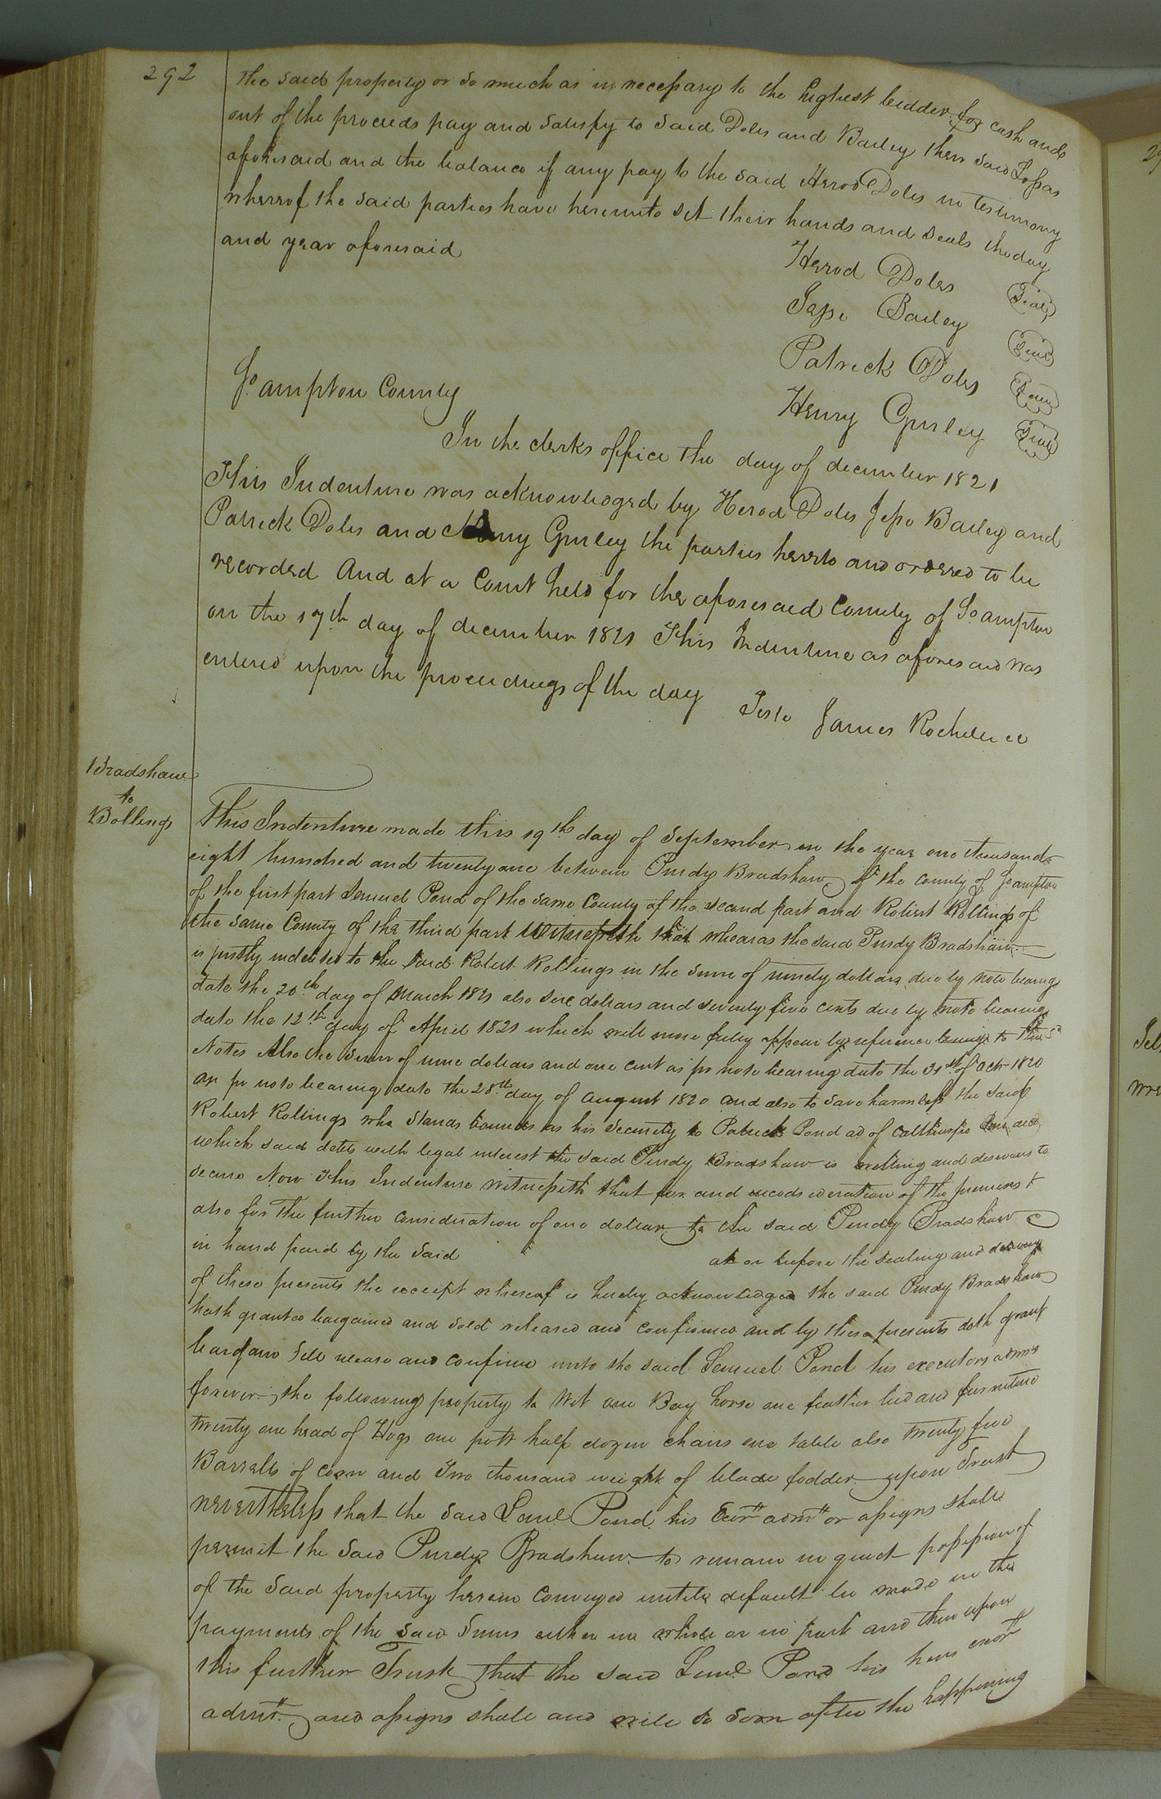 292
the said property or so much as is necessary to the highest bidder for cash and
out of the proceeds pay and satisfy to said Doles and Bailey their said
aforesaid and the balance if any pay to the said Herod Doles in testimony
whereof the said parties have hereunto set their hands and seals the day
and year aforesaid
Herod Doles Seal
Jesse Bailey Seal
Patrick Doles Seal
Henry Gurley Seal
So ampton County
In the clerks office the day of december 1821
This Indenture was acknowledged by Herod Doles Jesse Bailey and
Patrick Doles and Henry Gurley the parties hereto and ordered to be
recorded And at a Court held for the aforesaid County of So ampton
on the 17th day of december 1821 This Indenture as aforesaid was
entered upon the proceedings of the day
Teste James Rochelle cc
Bradshaw
to
Bollings
This Indenture made this 19th day of September in the year one thousand
eight hundred and twenty one between Purdy Bradshaw of the County of So ampton
of the first part Lemuel Pond of the same County of the second part and Robert Rollings of
the same County of the third part Witnesseth that wheareas the said Purdy Bradshaw
is justly indebted to the said Robert Rollings in the sum of ninety dollars due by note bearing
date the 20th day of March 1821 also five dollars and seventy five cents due by note bearing
date the 12th day of April 1821 which will more fully appear by reference being to
Notes Also the sum of nine dollars and one cent as pr note bearing date the of octr 1820
as pr note bearing date the 28th day of august 1820 and also to save harmless the said
Robert Rollings who stands bound as his security to Patrick Pond ad of
which said debts with legal interest the said Purdy Bradshaw is willing and desirous to
secure Now This Indenture witnesseth that for and inconsideration of the premises &
also for the further consideration of one dollar to the said Purdy Bradshaw
in hand paid by the said at or before the sealing and delivery
of these presents the receipt whereof is hereby acknowledged the said Purdy Bradshaw
hath granted bargained and sold released and confirmed and by these presents doth grant
bargain sell release and confirm unto the said Lemuel Pond his executors admrs
forever the following property to Wit one Bay horse one feather bed and furniture
twenty one head of Hogs one pott half dozen chairs one table also twenty five
Barrells of corn and Two thousand weight of blade fodder upon Trust
nevertheless that the said Leml Pond his Exors admrs or assigns shall
permit the said Purdy Bradshaw to remain in quiet possession of
of the said property herein conveyed untill default be made in the
payments of the said sums either in whole or in part and then upon
this further Trust that the said Leml Pond his heirs exors
admrs and assigns shall and will so soon after the happening